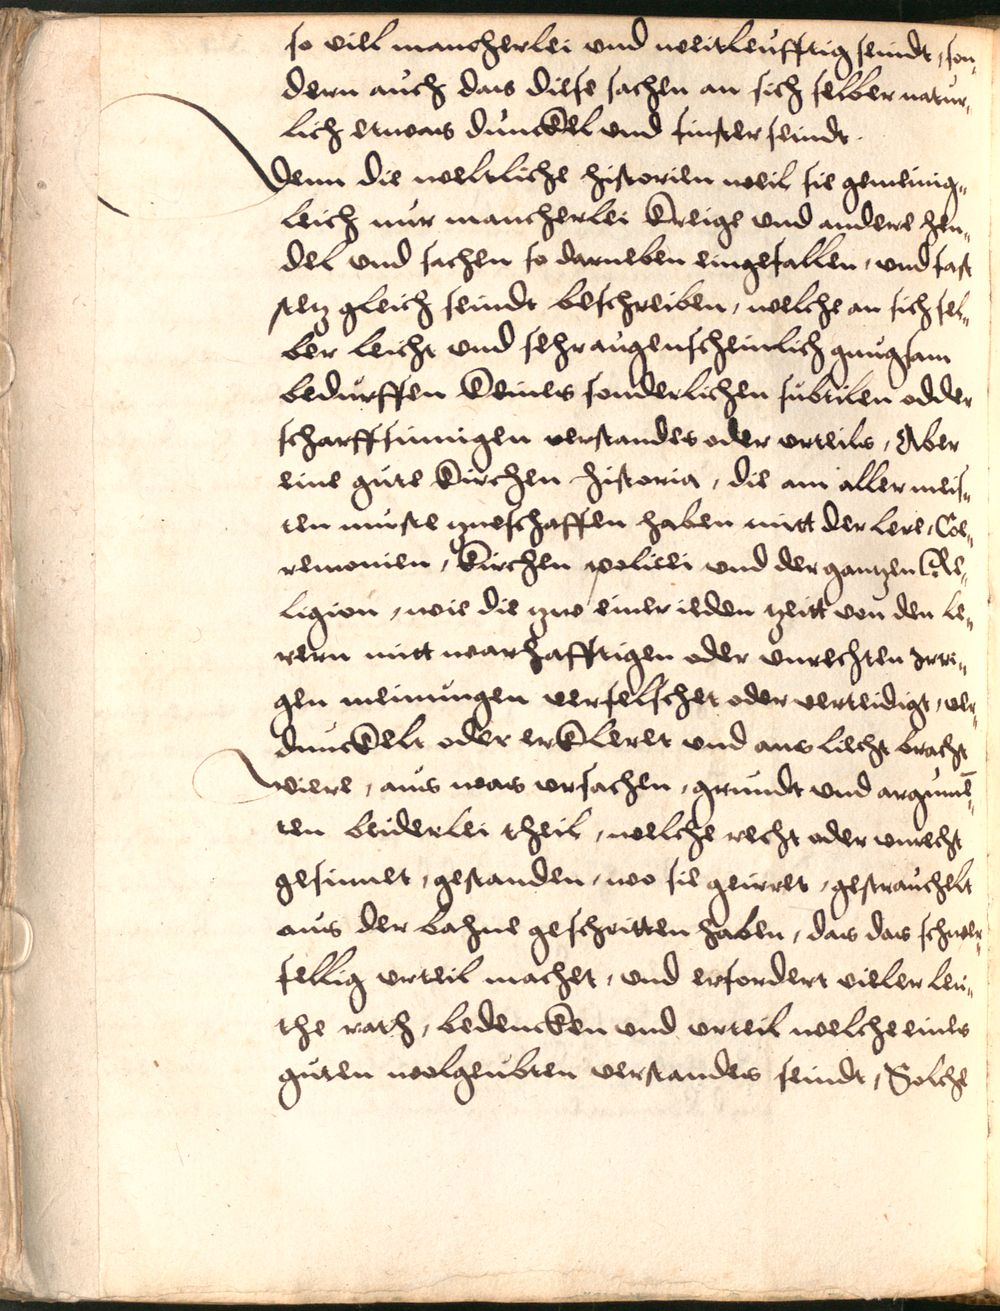 so viell mancherlei vnd weitleufftig seindt, son-
dern auch das diese sachen an sich selber natur-
lich etwas dunckel vnd finster seindt.
Denn die weltliche historien weil sie gemeinig-
leich nur mancherlei kreige vnd andere hen-
del vnd sachen so darneben eingefallen, vnd fast
stetz gleich seindt beschreiben, welche an sich sel-
ber leicht vnd sehr augenscheinlich gnugsam
bedurffen keines sonderlichen subtilen odder
scharffsinnigen verstandes oder vrteils, Aber
eine gute kirchen historia, die am allermeis-
ten muste zueschaffen haben mitt der lere, Ce-
remonien, kirchen policei vnd der gantzen Re-
ligion, wie die zue einer ieden zeitt von den le-
rern mitt warhafftigen oder vnrechten Irri-
gen meinungen verfelschet oder verteidigt, ver-
dunckelt oder erkleret vnd ans liecht bracht
wiere, aus was vrsachen, grundt vnd argumē-
ten beiderlei theil, welche recht oder vnrecht
gesinnet, gestanden, wo sie geirret, gestrauchelt
aus der bahne geschritten haben, das das schwer-
fellig vrteil machet, vnd erfordert vieler leu-
the rath, bedencken vnd vrteil welche eines
guten wolgeubten verstandes seindt, Solche